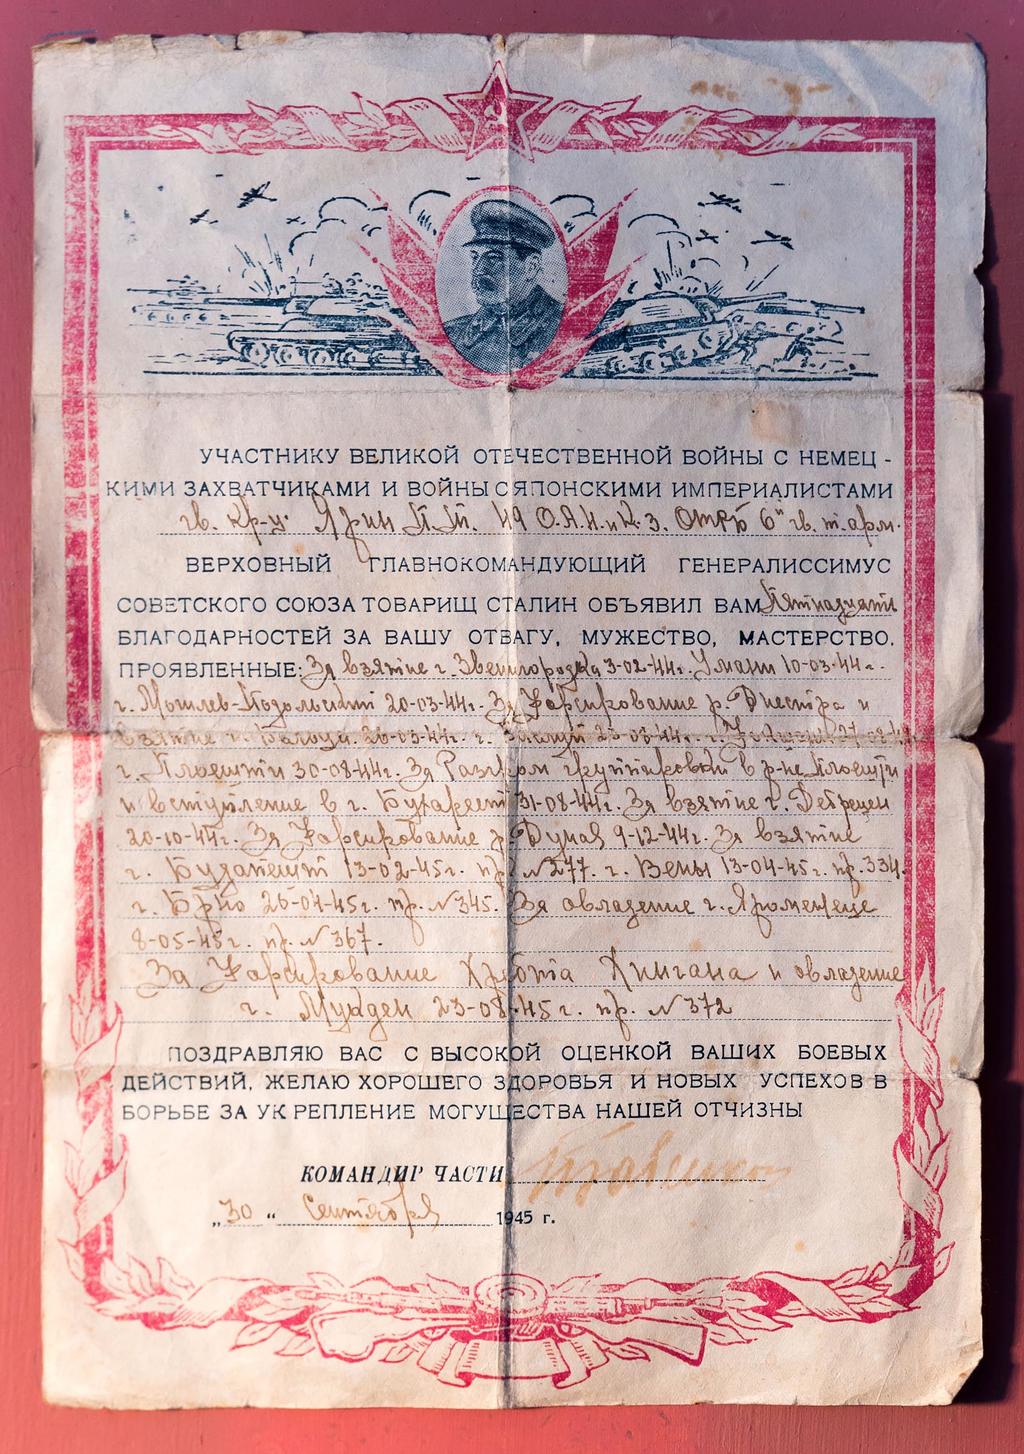 УЧАСТНИКУ ВЕЛИКОЙ ОТЕЧЕСТВЕННОЙ ВОЙНЫ С НЕМЕЦ-
КИМИ ЗАХВАТЧИКАМИ И ВОЙНЫ С ЯПОНСКИМИ ИМПЕРИАЛИСТАМИ
гв. Кр-цу Ярин П.П. 49 6й гв. т. арм.
ВЕРХОВНЫЙ ГЛАВНОКОМАНДУЮЩИЙ ГЕНЕРАЛИССИМУС
СОВЕТСКОГО СОЮЗА ТОВАРИЩ СТАЛИН ОБЪЯВИЛ ВАМ Пятнадцать
БЛАГОДАРНОСТЕЙ ЗА ВАШУ ОТВАГУ, МУЖЕСТВО, МАСТЕРСТВО,
ПРОЯВЛЕННЫЕ: За взятие г. Звенигородка 3-02-44г. Умани 10-03-44г.
г. Могилев-Подольский 20-03-44г. За Форсирование р. Днестра и
взятие г. Бельцы 26-03-44г. г.
г. Плоешти 30-08-44г. За Разгром группировки в р-не Плоешти
и вступление в г. Бухарест 31-08-44г. За взятие г. Дебрецен
20-10-44г. За Форсирование р. Дуная 9-12-44г. За взятие
г. Будапешт 13-02-45г. пр. №277. г. Вены 13-04-45г. пр. 334.
г. Брно 26-04-45г. пр. №345. За овладение г. Яромержеце
8-05-45г. пр. №367.
За Форсирование Хребта Хингана и овладение
г. Мукден 23-08-45г. пр. №372
ПОЗДРАВЛЯЮ ВАС С ВЫСОКОЙ ОЦЕНКОЙ ВАШИХ БОЕВЫХ
ДЕЙСТВИЙ, ЖЕЛАЮ ХОРОШЕГО ЗДОРОВЬЯ И НОВЫХ УСПЕХОВ В
БОРЬБЕ ЗА УКРЕПЛЕНИЕ МОГУЩЕСТВА НАШЕЙ ОТЧИЗНЫ
КОМАНДИР ЧАСТИ
„30" Сентября 1945 г.